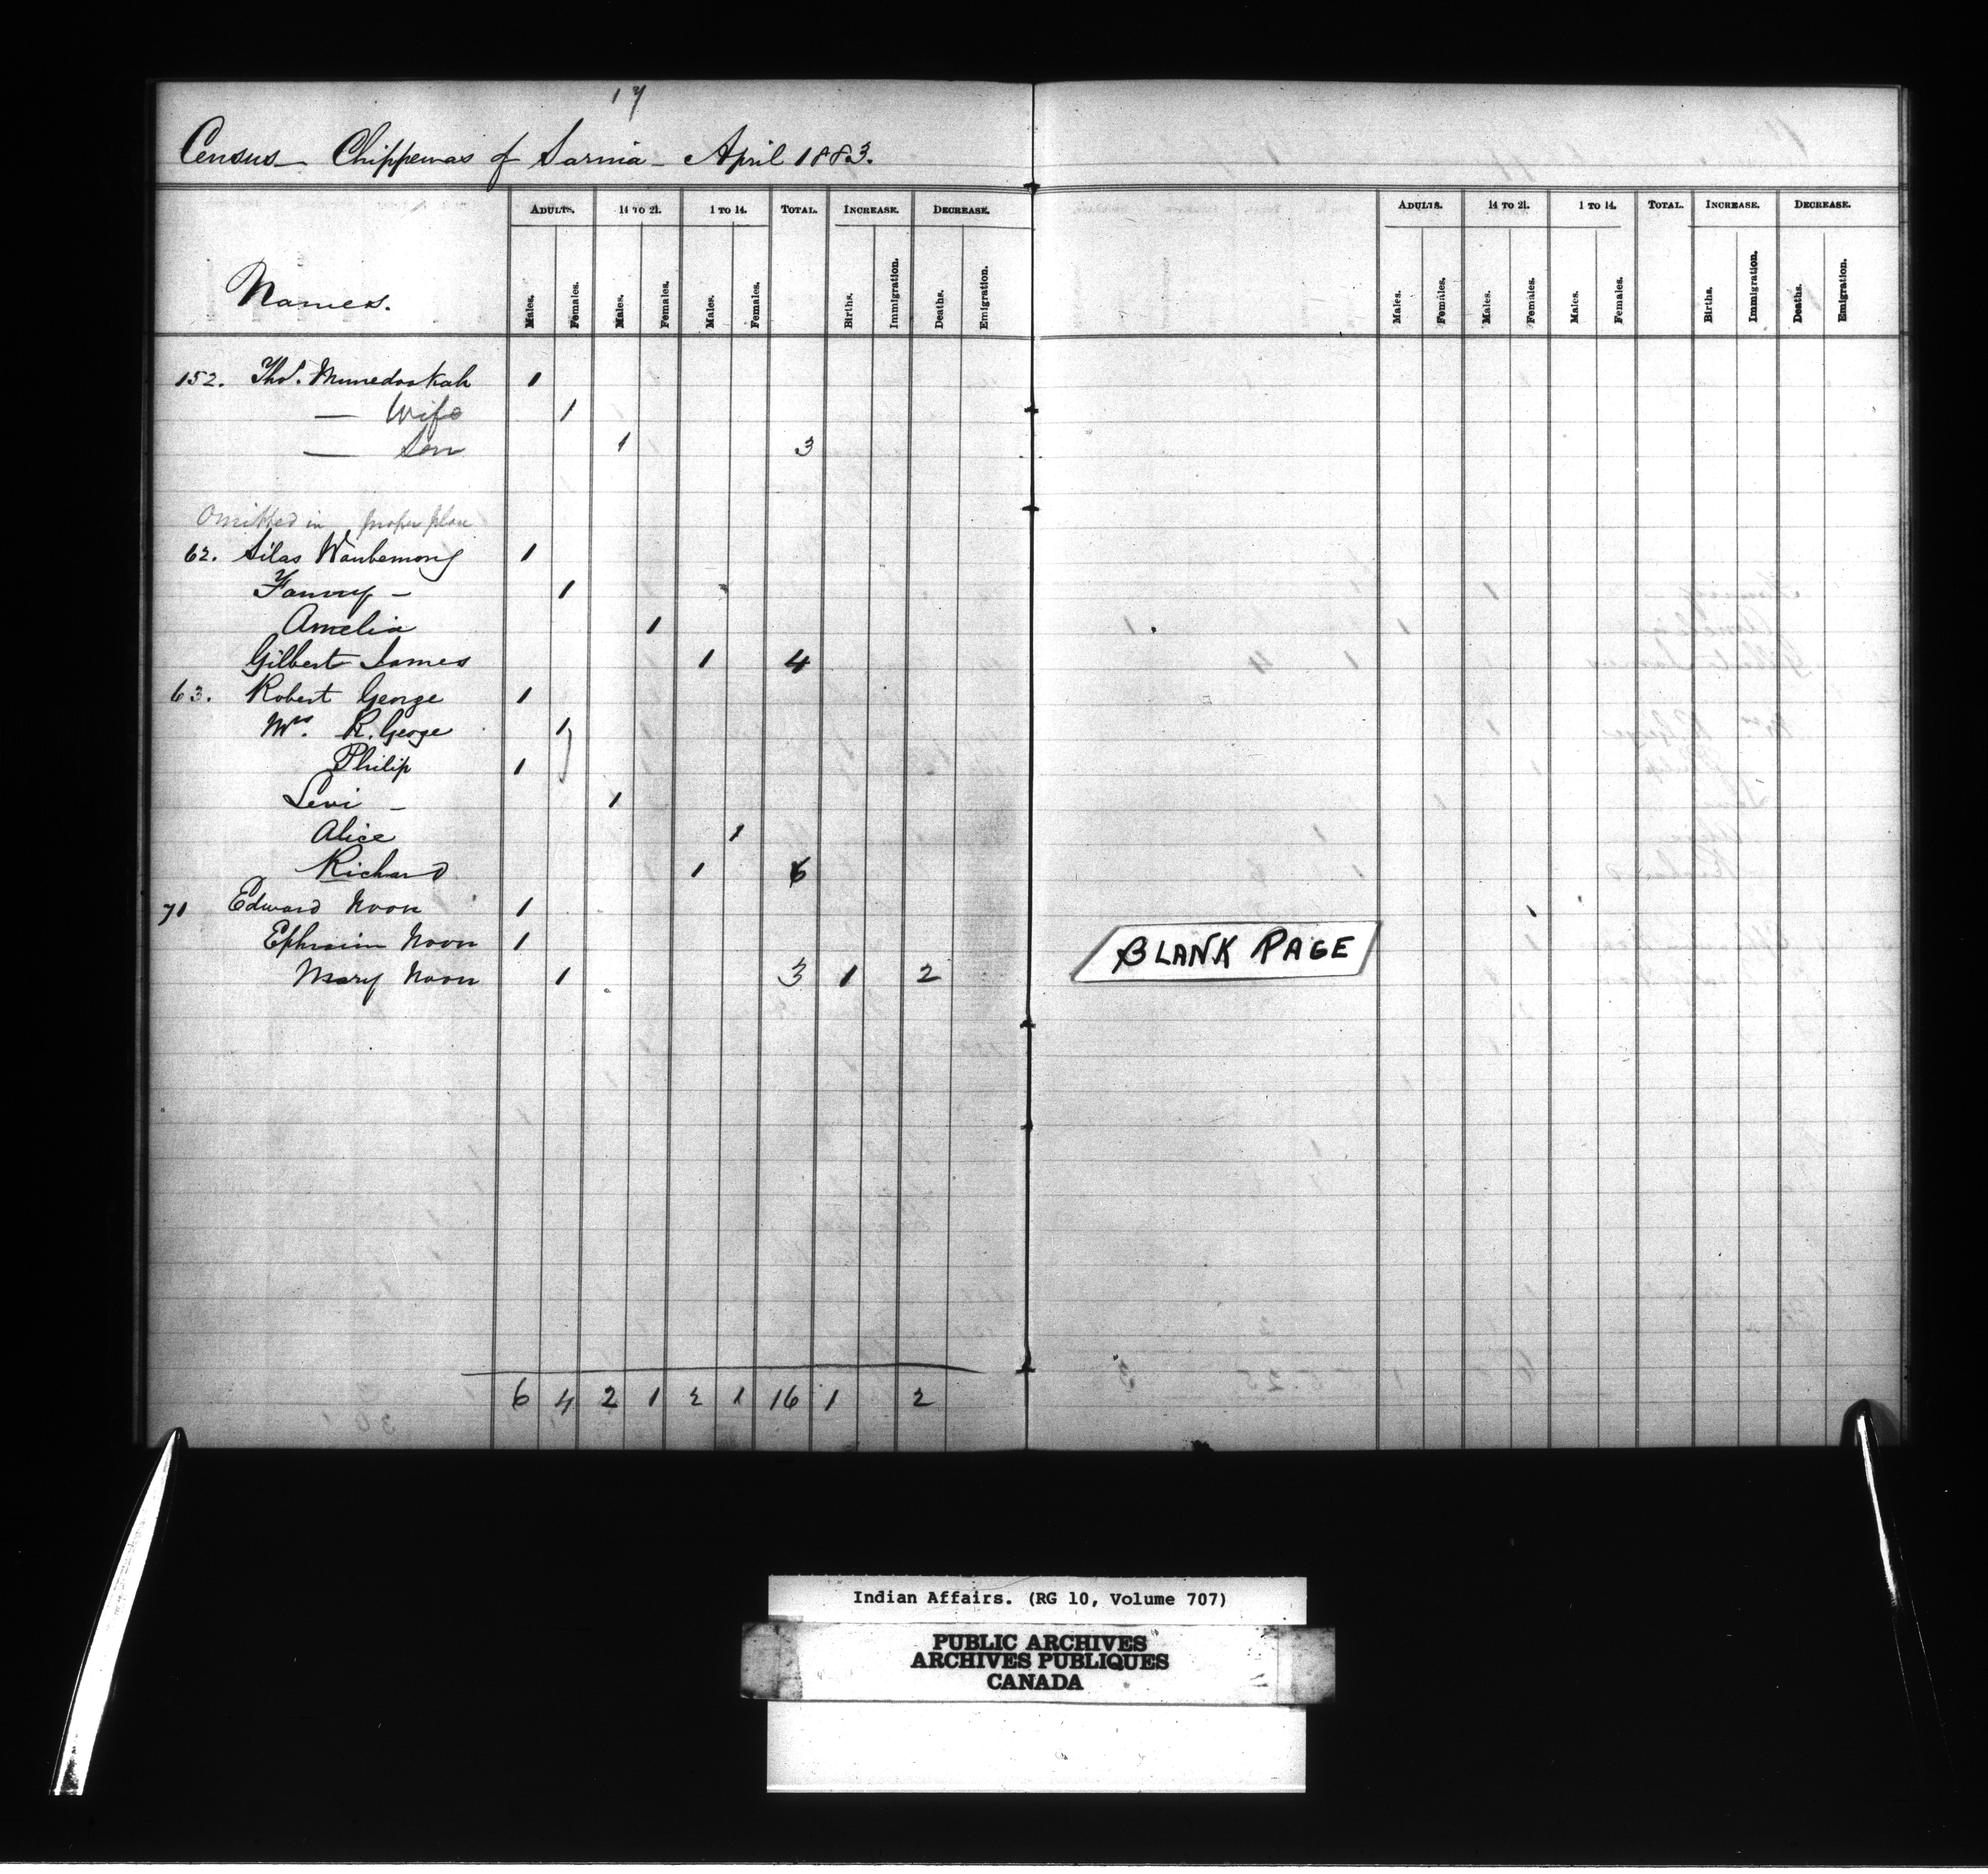 17
Census - Chippewas of Sarnia - April 1883.
Names. ADULTS. 14 TO 21. 1 TO 14. TOTAL. INCREASE. DECREASE.
Males. Females. Males. Females. Males. Females. Births. Immigration. Deaths. Emigration.
152. Thos. Munedookah 1
— Wife 1
— Son 1 3
Omitted in proper place
62. Silas Waubemong 1
Fanny - 1
Amelia 1
Gilbert James 1 4
63. Robert George 1
Mrs. R. George 1
Philip 1
Levi - 1
Alice 1
Richard 1 6
71 Edward Noon 1
Ephraim Noon 1
Mary Noon 1 3 1 2
6 4 2 1 2 1 16 1 2
ADULTS. 14 TO 21. 1 TO 14. TOTAL. INCREASE. DECREASE.
Males. Females. Males. Females. Males. Females. Births. Immigration. Deaths. Emigration.
BLANK PAGE
Indian Affairs. (RG 10, Volume 707)
PUBLIC ARCHIVES
ARCHIVES PUBLIQUES
CANADA